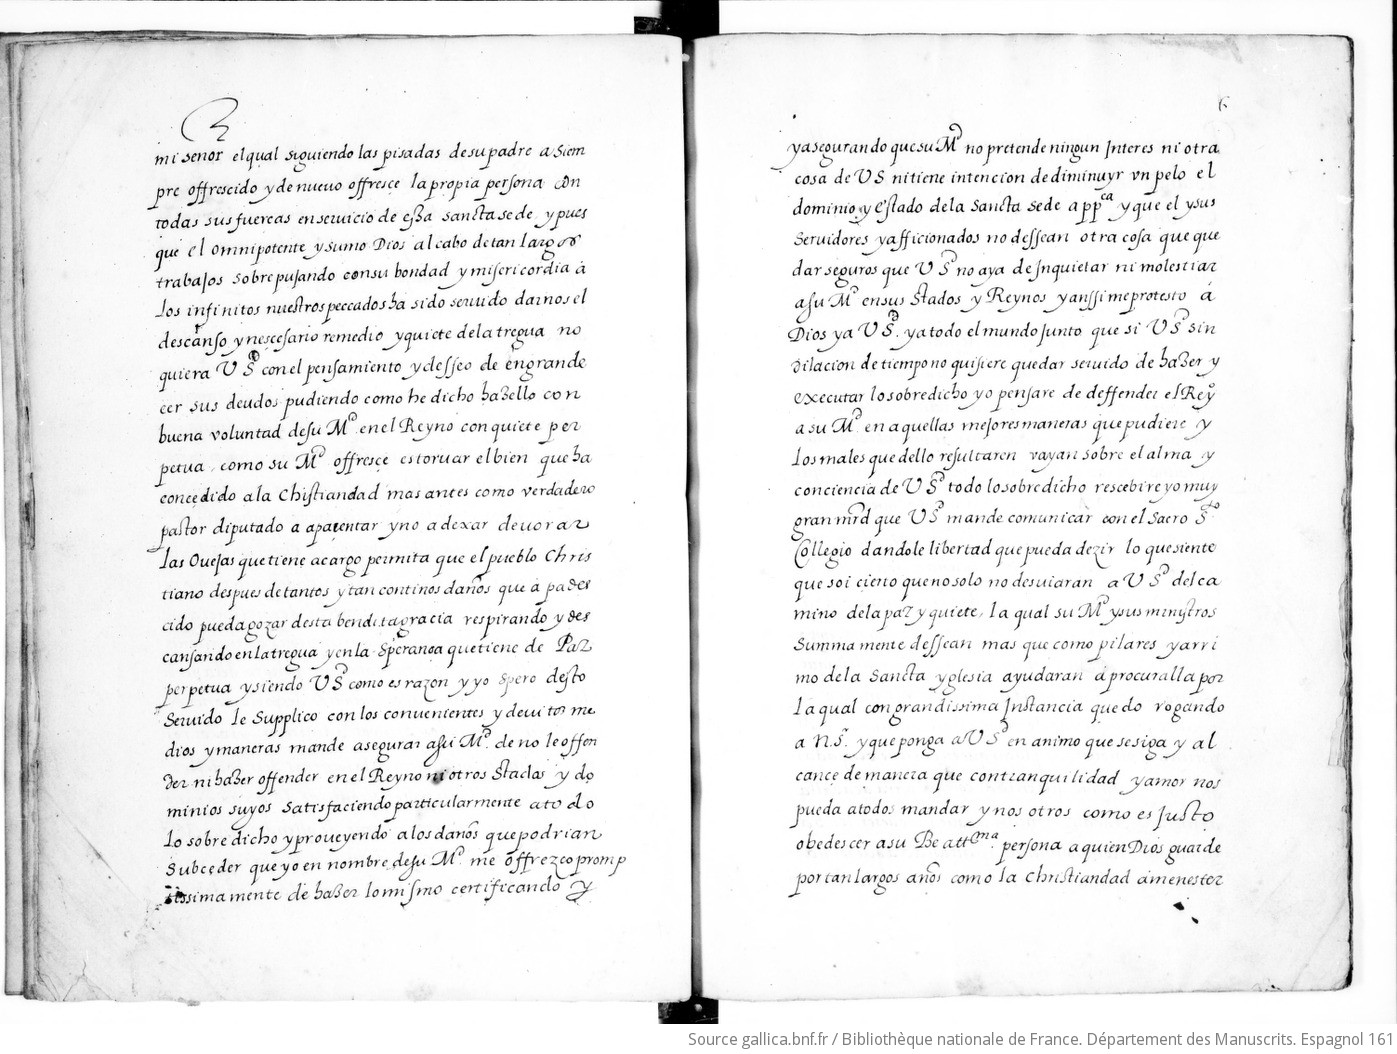 mi señor el qual siguiendo las pisadas de su padre a siem
pre offrescido y de nuevo offresce la propia persona con
todas sus fuercas en servicio de essa sancta sede y pues
que el omnipotente y sumo Dios al cabo de tan largos
trabajos sobrepujando con su bondad y misericordia a
los infinitos nuestros peccados ha sido servido darnos el
descanso y nescesario remedio y quiete de la tregua no
quiera V Sd con el pensamiento y desseo de engrande
cer sus deudos pudiendo como he dicho hazello con
buena voluntad de su Md en el Reyno con quiete per
petua, como su Md offresce estorvar el bien que ha
concedido a la Christiandad mas antes como verdadero
pastor diputado a apacentar y no a dexar devorar
las Ovejas que tiene a cargo permita que el pueblo Chris
tiano despues de tantos y tan continos daños que a pades
cido pueda gozar desta bendita gracia respirando y des
cansando en la tregua y en la Speranza que tiene de Paz
perpetua y siendo V Sd como es razon y yo spero desto
Servido le Supplico con los convenientes y devitos me
dios y maneras mande asegurar a su Md de no le offen
der ni hazer offender en el Reyno ni otros Stados y do
minios suyos Satisfaciendo particularmente a todo
lo sobre dicho y proveyendo a los daños que podrian
Subceder que yo en nombre de su Md me offrezco promp
tissimamente de hazer lo mismo certificando y
6
y asegurando que su Md no pretende ningun Interes ni otra
cosa de V S ni tiene intencion de diminuyr un pelo el
dominio y Estado de la Sancta Sede appca y que el y sus
Servidores y afficionados no dessean otra cosa que que
dar seguros que V Sd no aya de Inquietar ni molestiar
a su Md en sus Stados y Reynos y anssi me protesto á
Dios y a V Sd. y a todo el mundo Junto que si V Sd sin
dilacion de tiempo no quisiere quedar servido de hazer y
executar lo sobredicho yo pensare de deffender el Reyº
a su Md en aquellas mejores maneras que pudiere y
los males que dello resultaren vayan sobre el alma y
conciencia de V Sd todo lo sobredicho rescebire yo muy
gran mrd que V Sd mande comunicar con el Sacro Sto
Collegio dandole libertad que pueda dezir lo que siente
que soi cierto que no solo no desviaran a V Sd del ca
mino de la paz y quiete, la qual su Md y sus ministros
Summamente dessean mas que como pilares y arri
mo de la Sancta yglesia ayudaran a procuralla por
la qual con grandissima Instancia quedo rogando
a N. Sr. y que ponga a V Sd en animo que se siga y al
cance de manera que con tranquilidad y amor nos
pueda a todos mandar y nosotros como es Justo
obedescer a su Beattma. persona a quien Dios guarde
por tan largos años como la Christiandad a menester